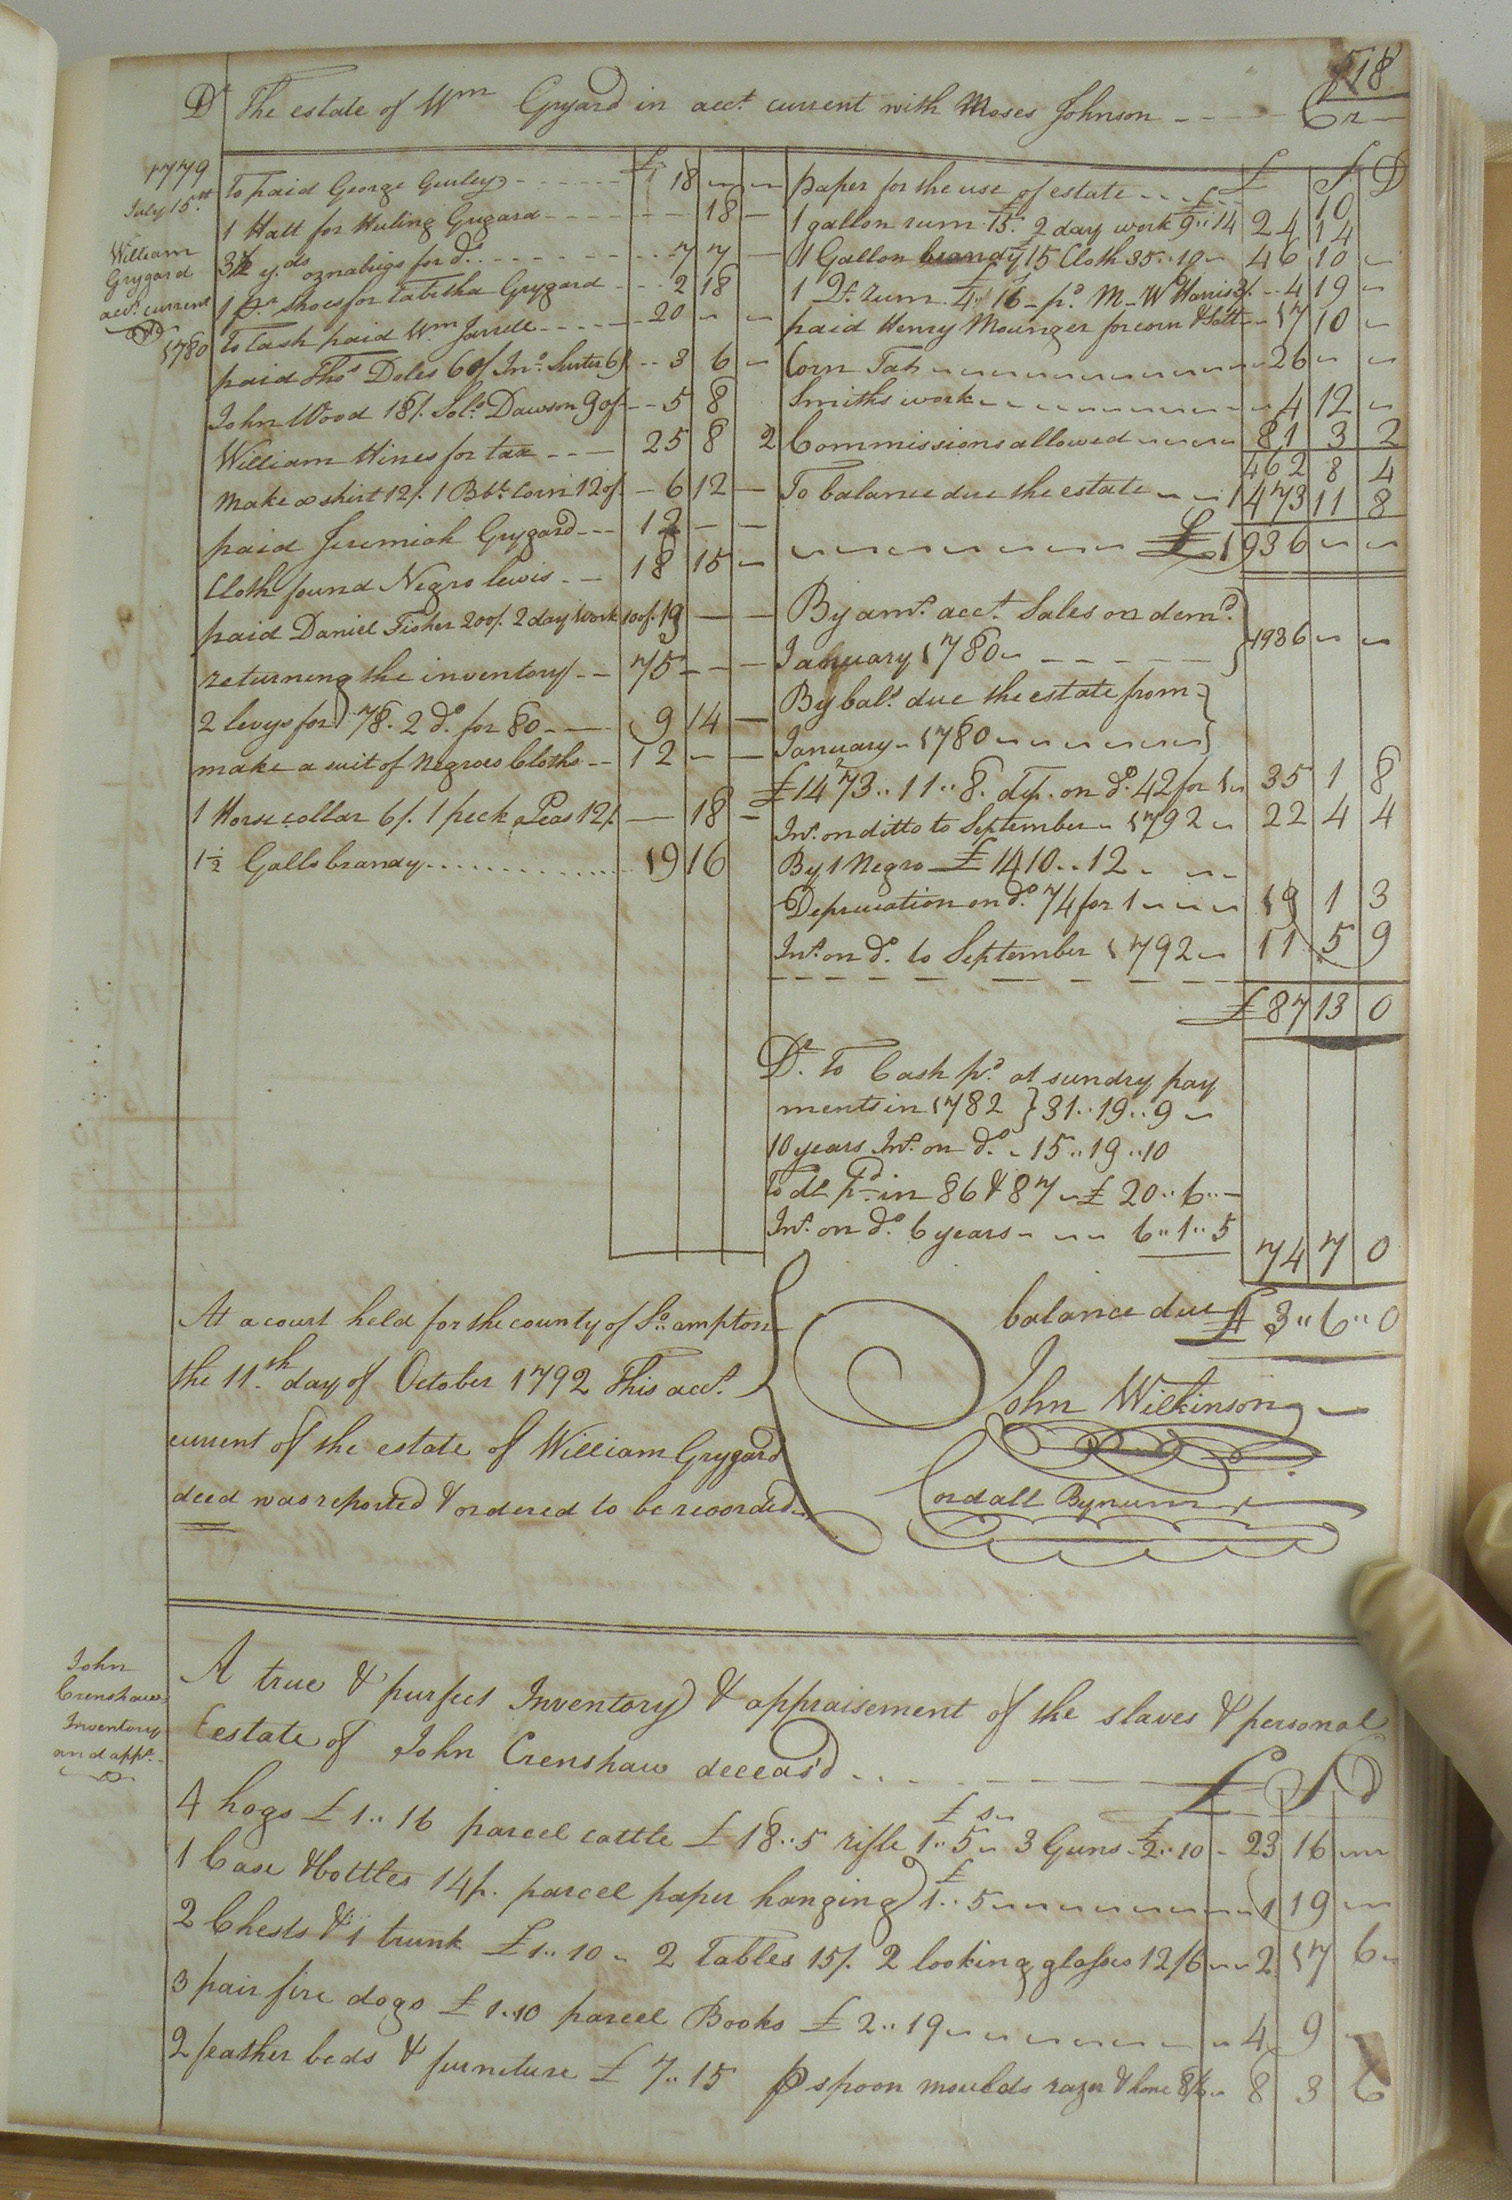 518
Dr The estate of Wm Grygard in acct. current with Moses Johnson Cr
1779
July 15th
William
Grygard
acct. current
1780
to paid George Gurley 18
1 Hatt for Huling Grygard 18
3½ yds oznabrigs for do. 7 7
1 pr shoes for Tabitha Grygard 2 18
To Cash paid Wm Jarrell 20
paid Thos Doles 60/ Jno. Surter 6/ 3 6
John Wood 18/. Solo. Dawson 90/ 5 8
William Hines for tax 25 8 2
make a shirt 12/. 1 Bbl. corn 120/. 6 12
paid Jeremiah Grygard 12
Cloth found Negro lewis 18 15
paid Daniel Fisher 200/. 2 day work 100/. 19
returning the inventory 75
2 levys for 78. 2 do. for 80 9 14
make a suit of Negroes Cloths 12
1 Horse collar 6/. 1 peck Peas 12/. 18
1½ Galls brandy 19 16
£ S D
paper for the use of estate 10
1 gallon rum £15. 2 day work £9..14 24 14
1 Gallon brandy £15 Cloth 35..10 46 10
1 Qt. rum £4..16 pd. M W Harris 3/. 4 19
paid Henry Mounger for corn & Salt 17 10
Corn Tax 26
Smiths work 4 12
Commissions allowed 81 3 2
462 8 4
To balance due the estate 1473 11 8
£ 1936
By amt. acct. Sales on demd.
January 1780 1936
By bal. due the estate from
January 1780
£1473..11..8. dep. on do. 42 for 1 35 1 8
Int. on ditto to September 1792 22 4 4
By 1 Negro £1410..12
Depreciation on do. 74 for 1 19 1 3
Int. on do. to September 1792 11 5 9
£87 13 0
Dr. To Cash pd. at sundry pay
ments in 1782 } 31..19..9
10 years Int. on do. 15..19..10
To do pd in 86 & 87 £ 20..6..
Int. on do. 6 years 6..1..5
74 7 0
balance due £ 3..6..0
John Wilkinson
Cordall Bynum
At a court held for the county of So.ampton
the 11th. day of October 1792 This acct.
current of the estate of William Grygard
decd was reported & ordered to be recorded
John
Crenshaws
Inventory
and appt.
A true & purfect Inventory & appraisement of the slaves & personal
Eestate of John Crenshaw deceas'd
£ S D
4 hogs £1..16 parcel cattle £18..5 rifle £1..5 s 3 Guns £2..10 23 16
1 Case & bottles 14/. parcel paper hanging £1..5 1 19
2 Chests & 1 trunk £1..10 2 Tables 15/. 2 looking glasses 12/6 2 17 6
3 pair fire dogs £1..10 parcel Books £2..19 4 9
2 feather beds & furniture £7..15 spoon moulds razor & hone 8/6 8 3 6